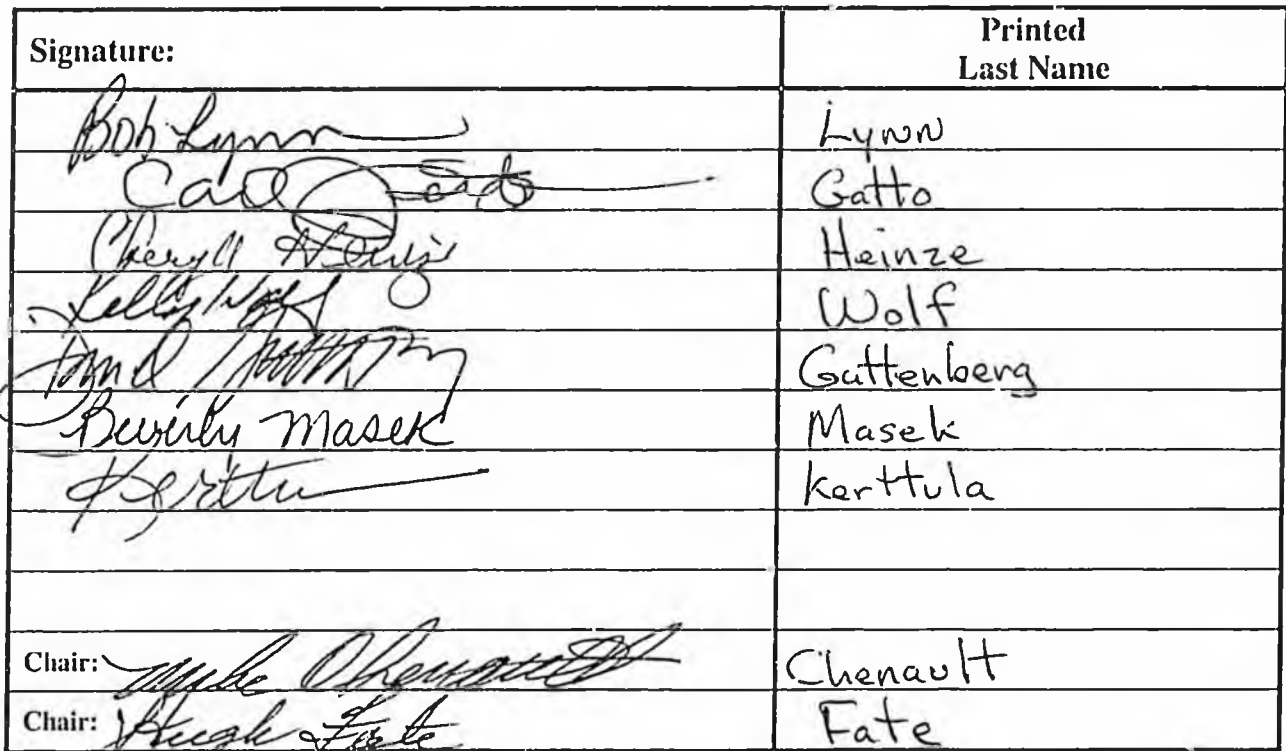 Signature: Printed
Last Name
Bob Lynn Lynn
Carl Gatto Gatto
Cheryll Heinze Heinze
Kelly Wolf Wolf
Guttenberg
Beverly Masek Masek
Kerttu Kerttula
Chair: Mike Chenault Chenault
Chair: Hugh Fate Fate